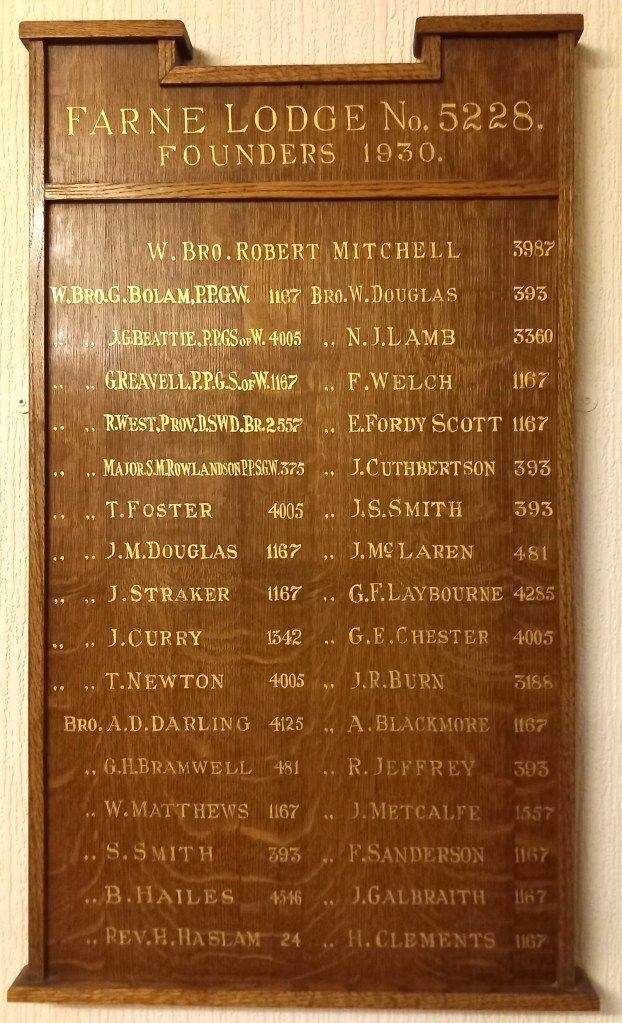 FARNE LODGE No. 5228.
FOUNDERS 1930.
W. BRO. ROBERT MITCHELL 3987
W. BRO. G. BOLAM, P.P.G.W. 1167 BRO. W. DOUGLAS 393
„ „ J.G. BEATTIE, P.P.G.S of W. 4005 „ N. J. LAMB 3360
„ „ G. REAVELL, P.P.G.S. of W. 1167 „ F. WELCH 1167
„ „ R. WEST, PROV. D. SWD. BR. 2557 „ E. FORDY SCOTT 1167
„ „ MAJOR. S. M. ROWLANDSON P.P.S.G.W. 375 „ J. CUTHBERTSON 393
„ „ T. FOSTER 4005 „ J. S. SMITH 393
„ „ J. M. DOUGLAS 1167 „ J. McLAREN 481
„ „ J. STRAKER 1167 „ G. F. LAYBOURNE 4285
„ „ J. CURRY 1342 „ G. E. CHESTER 4005
„ „ T. NEWTON 4005 „ J. R. BURN 3188
BRO. A. D. DARLING 4125 „ A. BLACKMORE 1167
„ G. H. BRAMWELL 481 „ R. JEFFREY 393
„ W. MATTHEWS 1167 „ J. METCALFE 1557
„ S. SMITH 393 „ F. SANDERSON 1167
„ B. HAILES 4546 „ J. GALBRAITH 1167
„ REV. H. HASLAM 24 „ H. CLEMENTS 1167